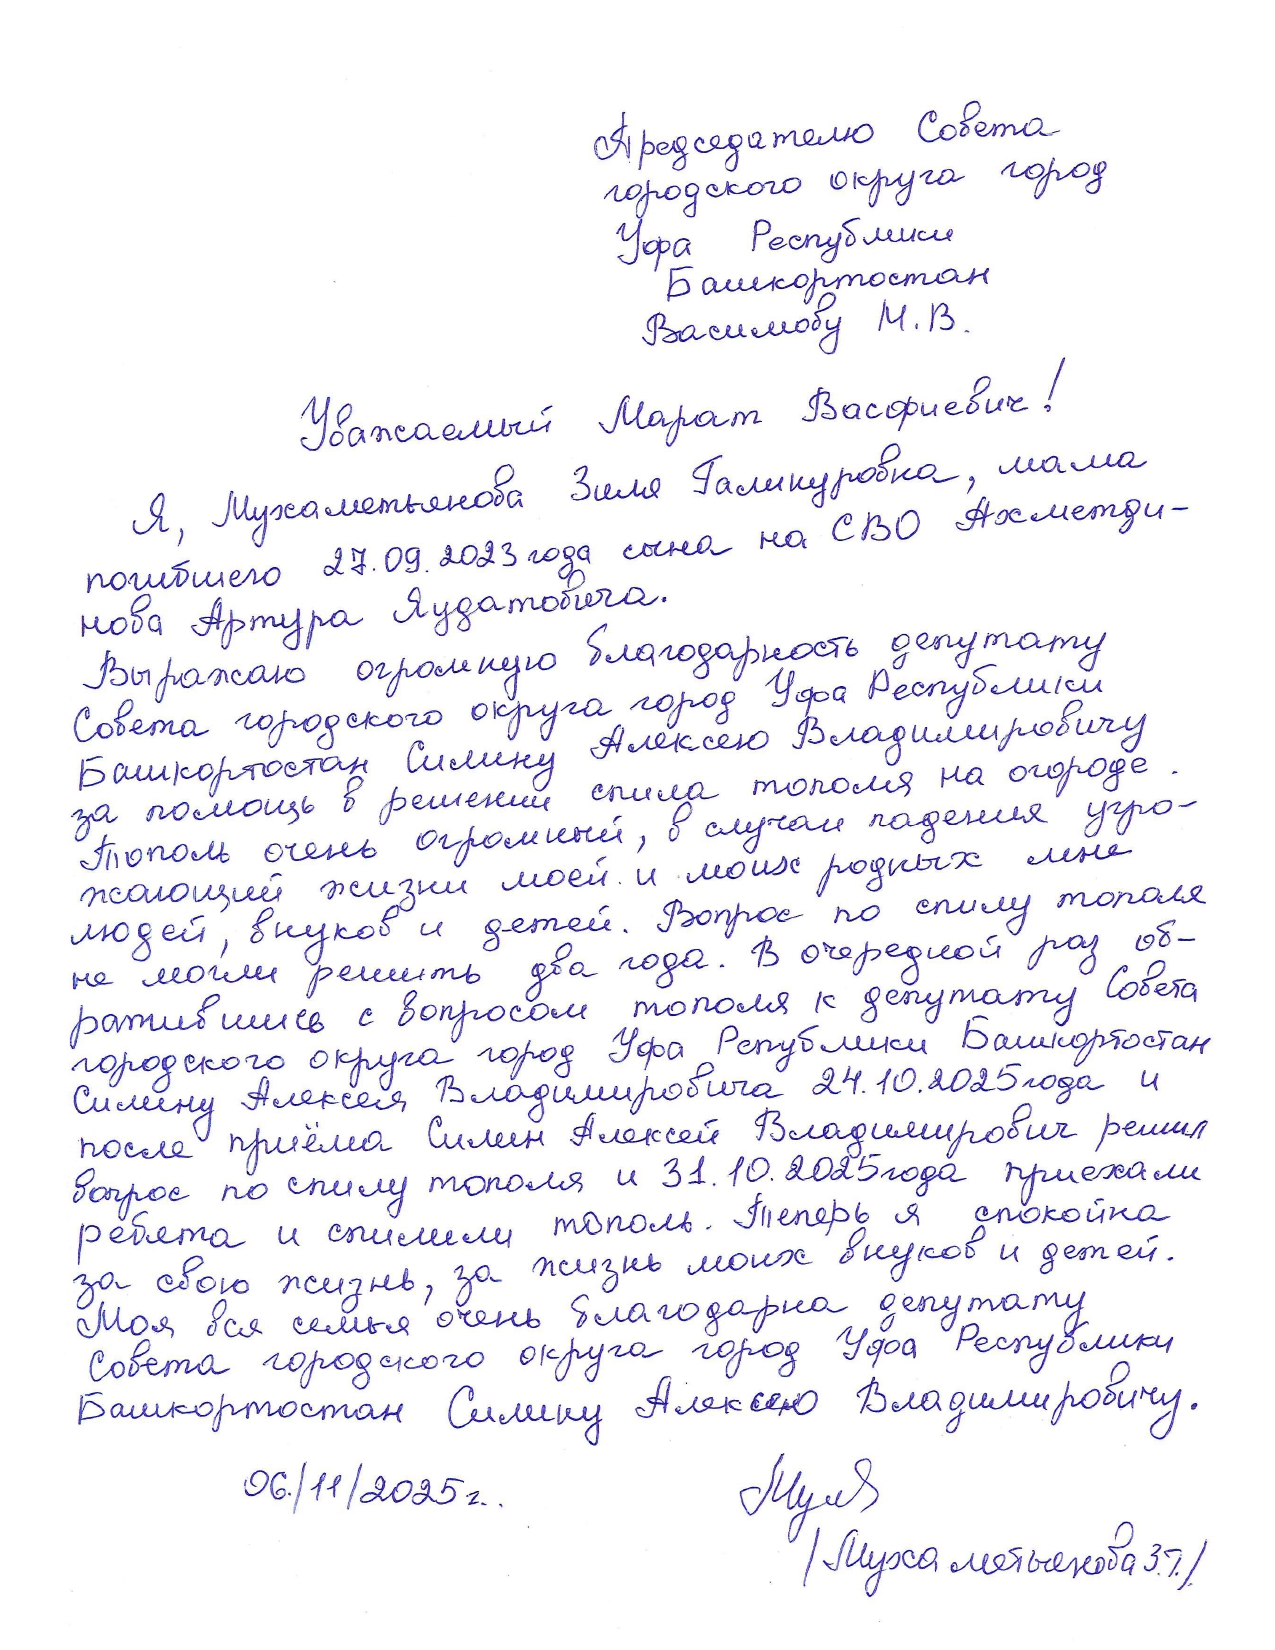 Председателю Совета
городского округа город
Уфа Республики
Башкортостан
Васимову М.В.
Уважаемый Марат Васфиевич!
Я, Мухаметьянова Зиля Галинуровна, мама
погибшего 27.09.2023 года сына на СВО Ахметди-
нова Артура Яудатовича.
Выражаю огромную благодарность депутату
Совета городского округа город Уфа Республики
Башкортостан Силину Алексею Владимировичу
за помощь в решении спила тополя на огороде.
Тополь очень огромный, в случаи падения угро-
жающий жизни моей и моих родных мне
людей, внуков и детей. Вопрос по спилу тополя
не могли решить два года. В очередной раз об-
ратившись с вопросом тополя к депутату Совета
городского округа город Уфа Републики Башкортостан
Силину Алексея Владимировича 24.10.2025 года и
после приёма Силин Алексей Владимирович решил
вопрос по спилу тополя и 31.10.2025 года приехали
ребята и спилили тополь. Теперь я спокойна
за свою жизнь, за жизнь моих внуков и детей.
Моя вся семья очень благодарна депутату
Совета городского округа город Уфа Республики
Башкортостан Силину Алексею Владимировичу.
06/11/2025 г.
/Мухаметьянова З.Г./